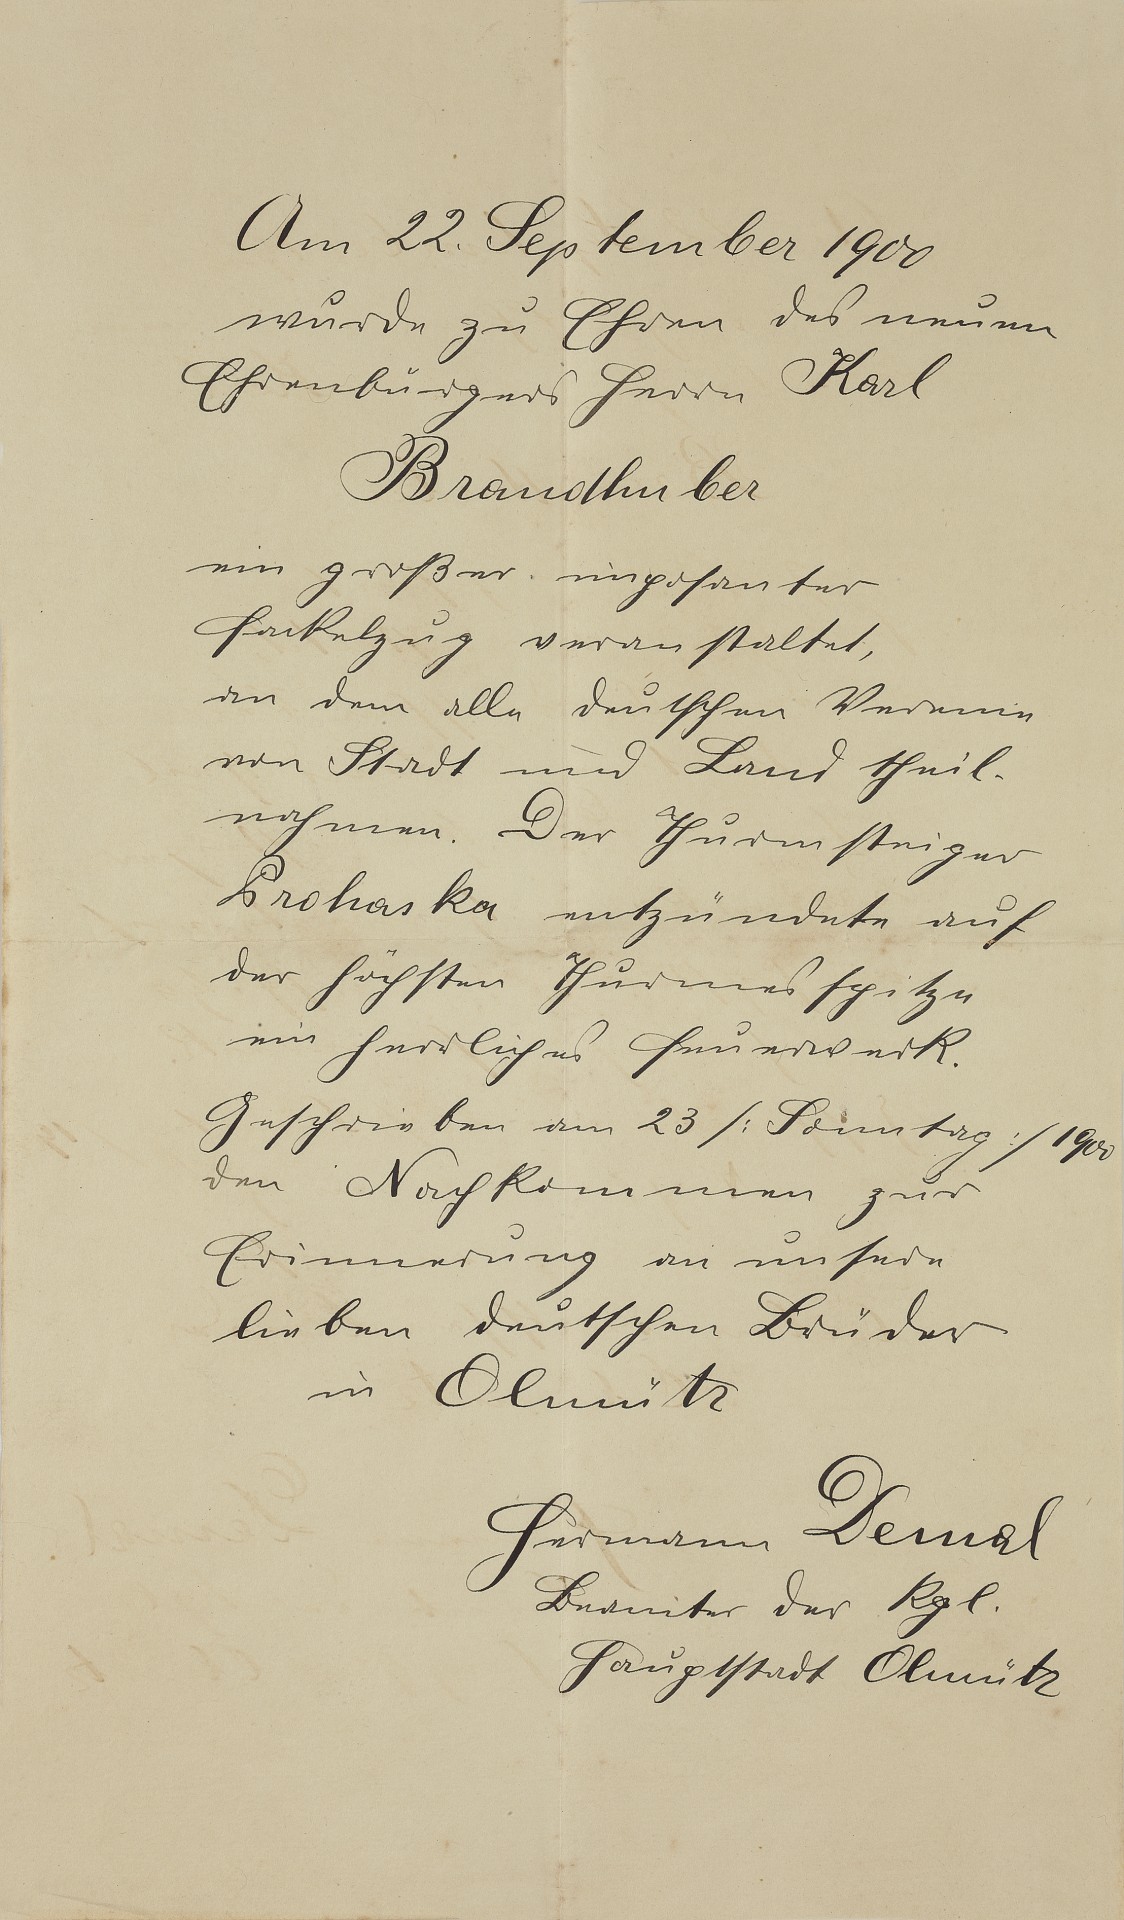 Am 22. September 1900
wurde zu Ehren des neuen
Ehrenbürgers Herrn Karl
Brandhuber
ein großer imposanter
Fackelzug veranstaltet,
an dem alle deutschen Vereine
von Stadt und Land theil-
nahmen. Der Thurmsteiger
Prohaska entzündete auf
der höchsten Thurmesspitze
ein herrliches Feuerwerk.
Geschrieben am 23 /: Sonntag :/ 1900
den Nachkommen zur
Erinnerung an unsere
lieben deutschen Brüder
in Olmütz
Hermann Demal
Beamter der kgl.
Hauptstadt Olmütz